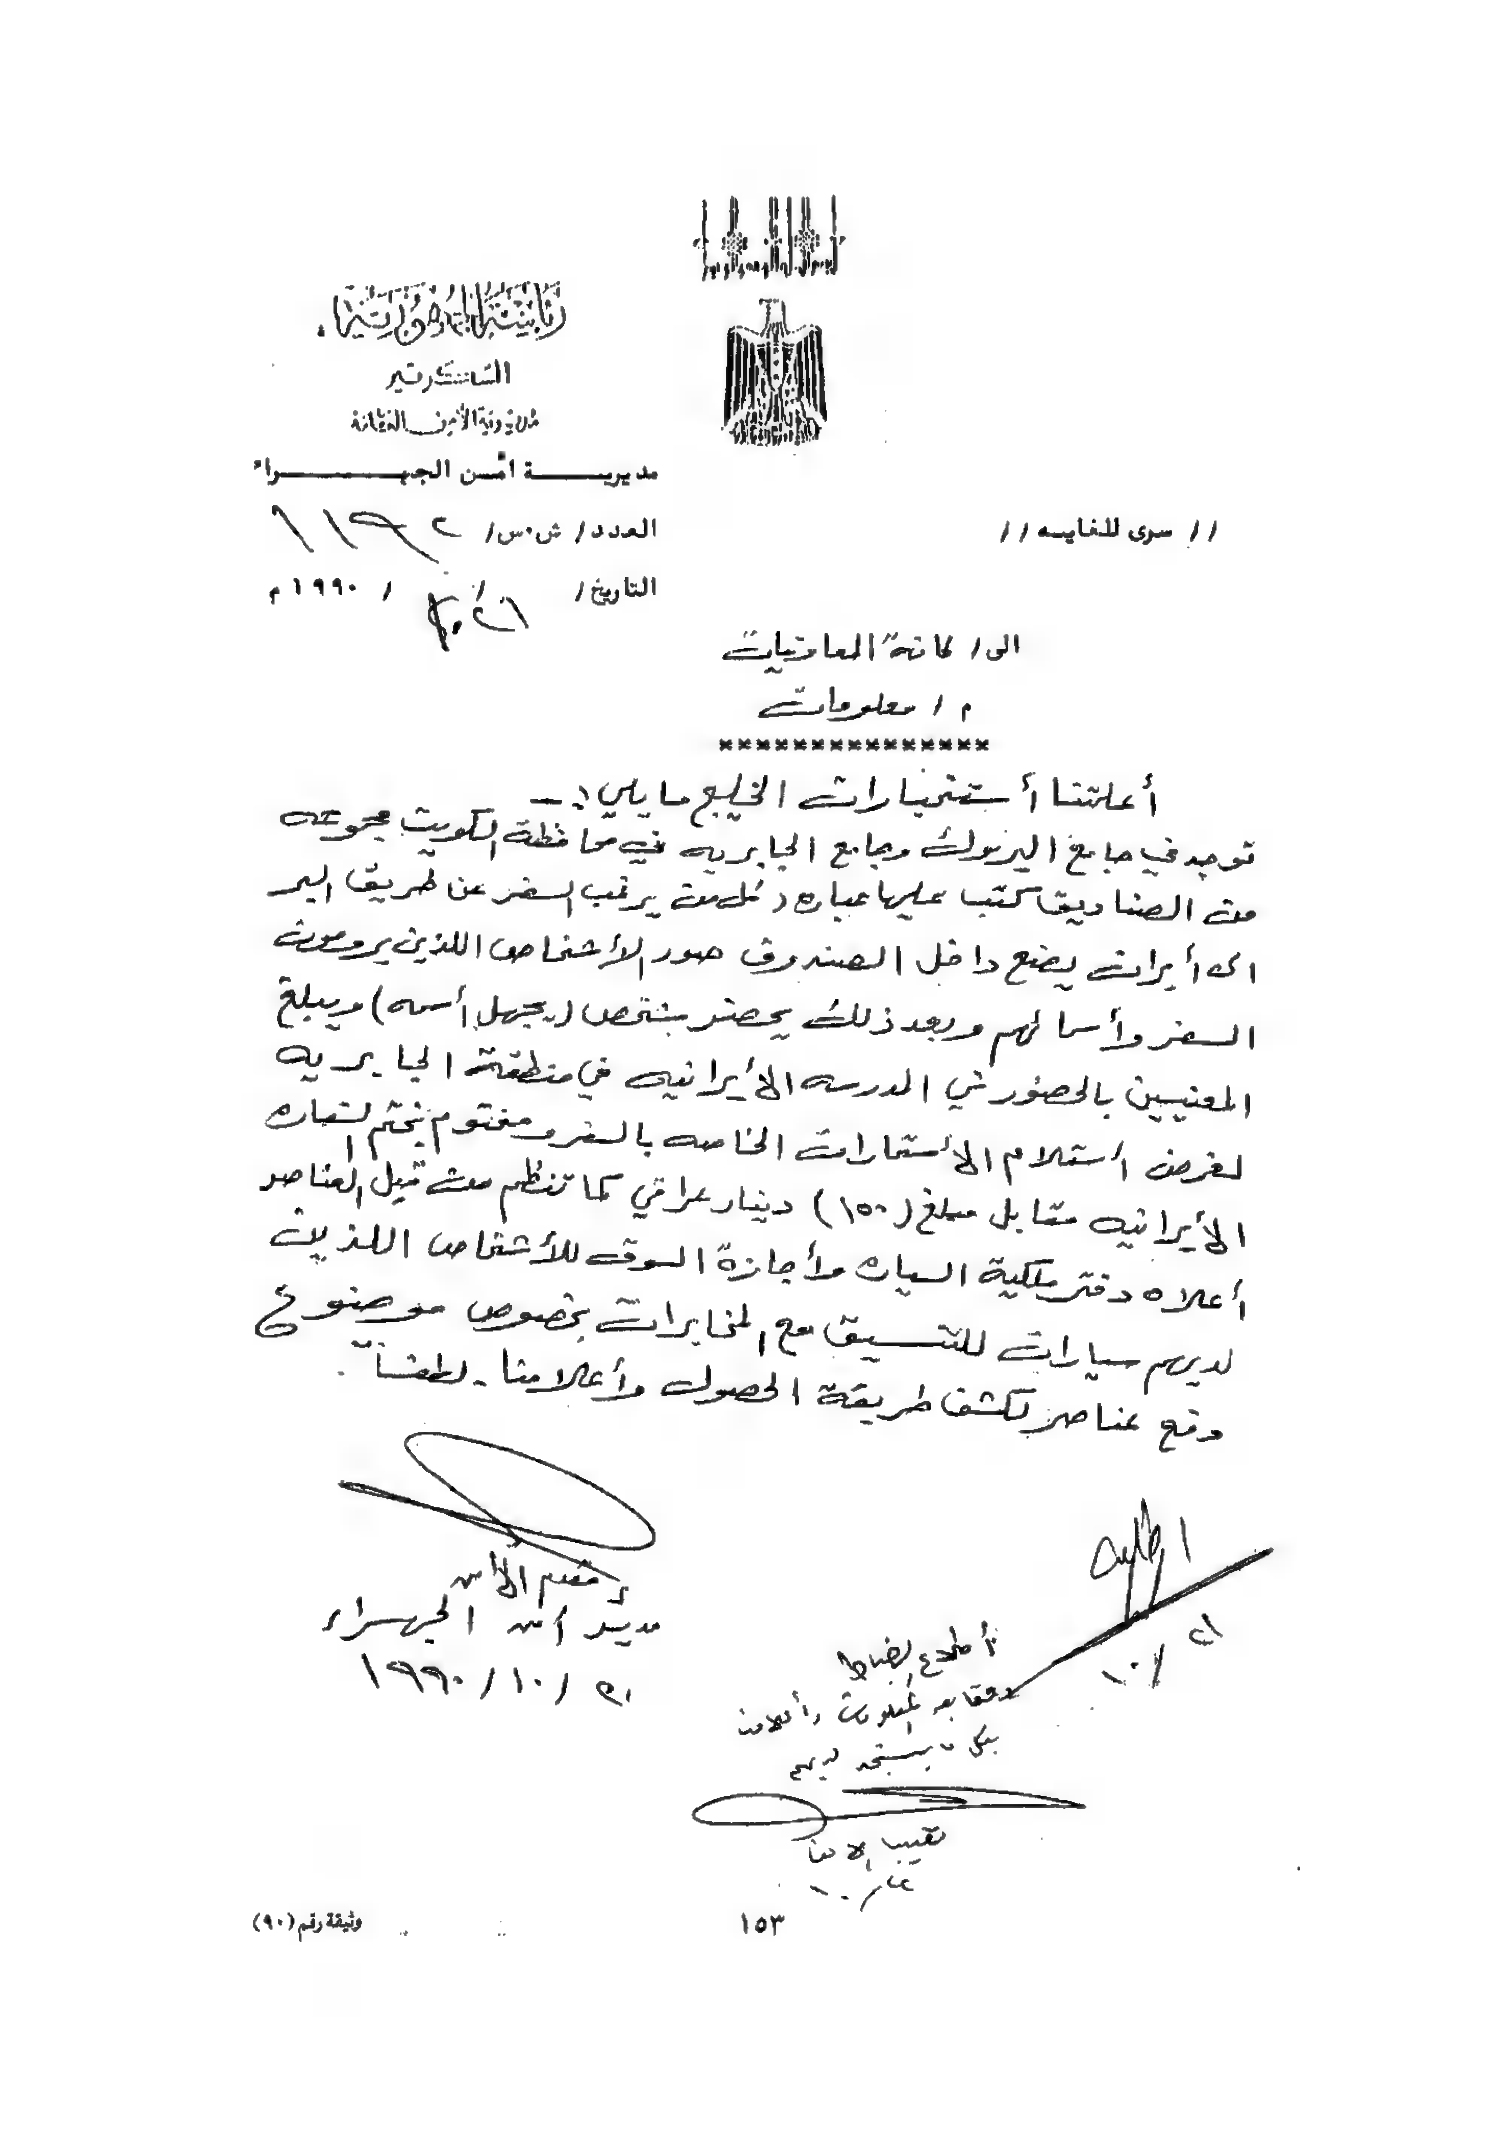 بسم الله الرحمن الرحيم
رئاسة الجمهورية
السكرتير
مديرية الأمن العامة
مديرية امن الجهراء
// سرى للغايه //
العدد/ ش.س/
التاريخ/ / / ١٩٩٠ م
الى/ كافة المعاونيات
م / معلومات
***************
أعلمتنا أستخبارات الخليج مايلي :ـ
توجد في جامع اليرموك وجامع الجابريه في محافظة الكويت مجموعه
من الصناديق كتب عليها عباره ( كل من يرغب السفر عن طريق البر
الى أيران يضع داخل الصندوق صور الأشخاص اللذين يرومون
السفر وأسمائهم وبعد ذلك يحضر شخص (يجهل أسمه) ويبلغ
المعنيين بالحضور في المدرسه الأيرانيه في منطقة الجابريه
لغرض أستلام الأستمارات الخاصه بالسفر ومختوم بختم السفاره
الأيرانيه مقابل مبلغ (١٥٠) دينار عراقي كما تنظم من قبل العناصر
أعلاه دفتر ملكية السياره وأجازة السوق للأشخاص اللذين
لديهم سيارات للتنسيق مع المخابرات بخصوص موضوع
دفع عناصر لكشف طريقة الحصول وأعلامنا - لطفاً .
مقدم الأمن
مدير أمن الجهراء
٢١ / ١٠ / ١٩٩٠
٢١ / ١٠
أطلاع الضباط
ومتابعه المعلومات وأعلامنا
بكل ما يستجد لديهم
نقيب الامن
١٠
١٥٣
وثيقة رقم (٩٠)